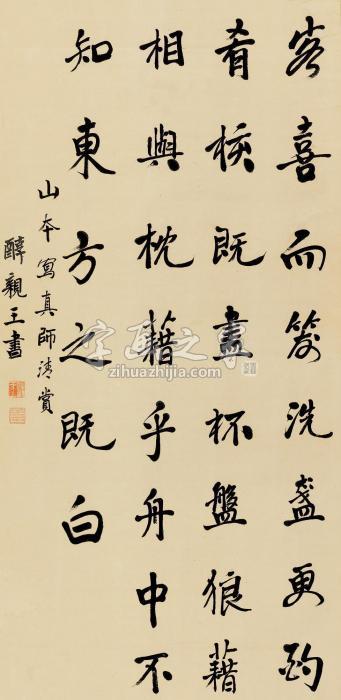 客喜而笑洗盏更酌
肴核既盡杯盤狼藉
相與枕藉乎舟中不
知東方之既白
山本寫真師清賞
醇親王書
字画之家
zihuazhijia.com